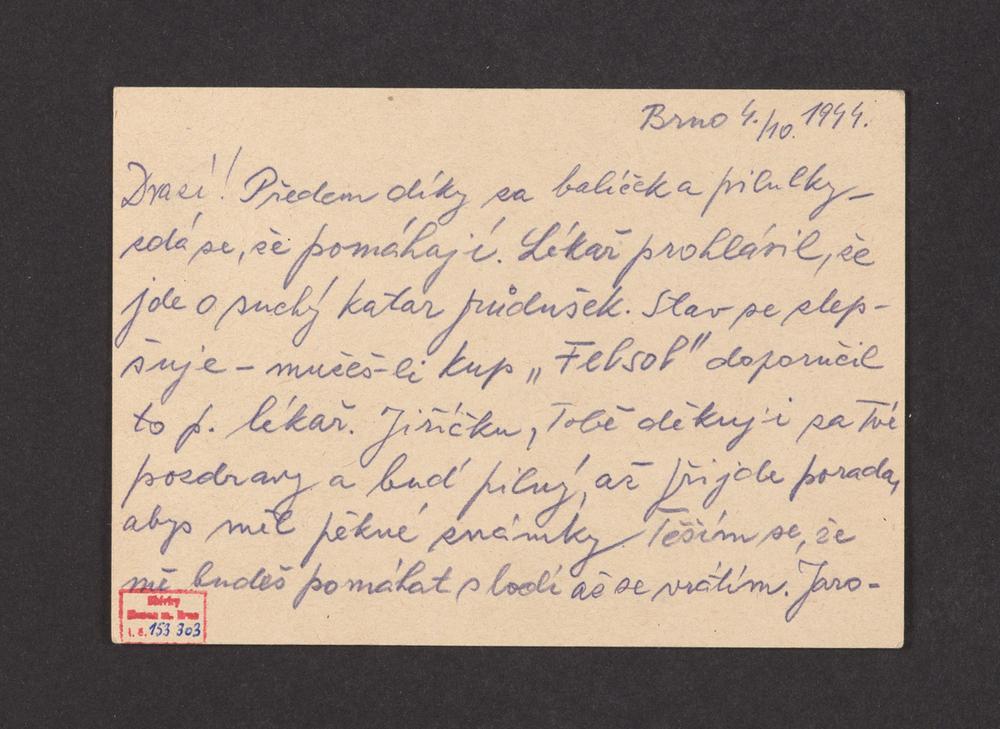 Brno 4./10. 1944.
Drazí! Předem díky za balíček a pilulky –
zdá se, že pomáhají. Lékař prohlásil, že
jde o suchý katar průdušek. Stav se zlep-
šuje – můžeš-li kup „Felsol" doporučil
to p. lékař. Jiříčku, Tobě děkuji za Tvé
pozdravy a buď pilný, až přijde porada,
abys měl pěkné známky. Těším se, že
mě budeš pomáhat s lodí až se vrátím. Jaro-
Sbírky
Muzea m. Brna
i. č. 153 303